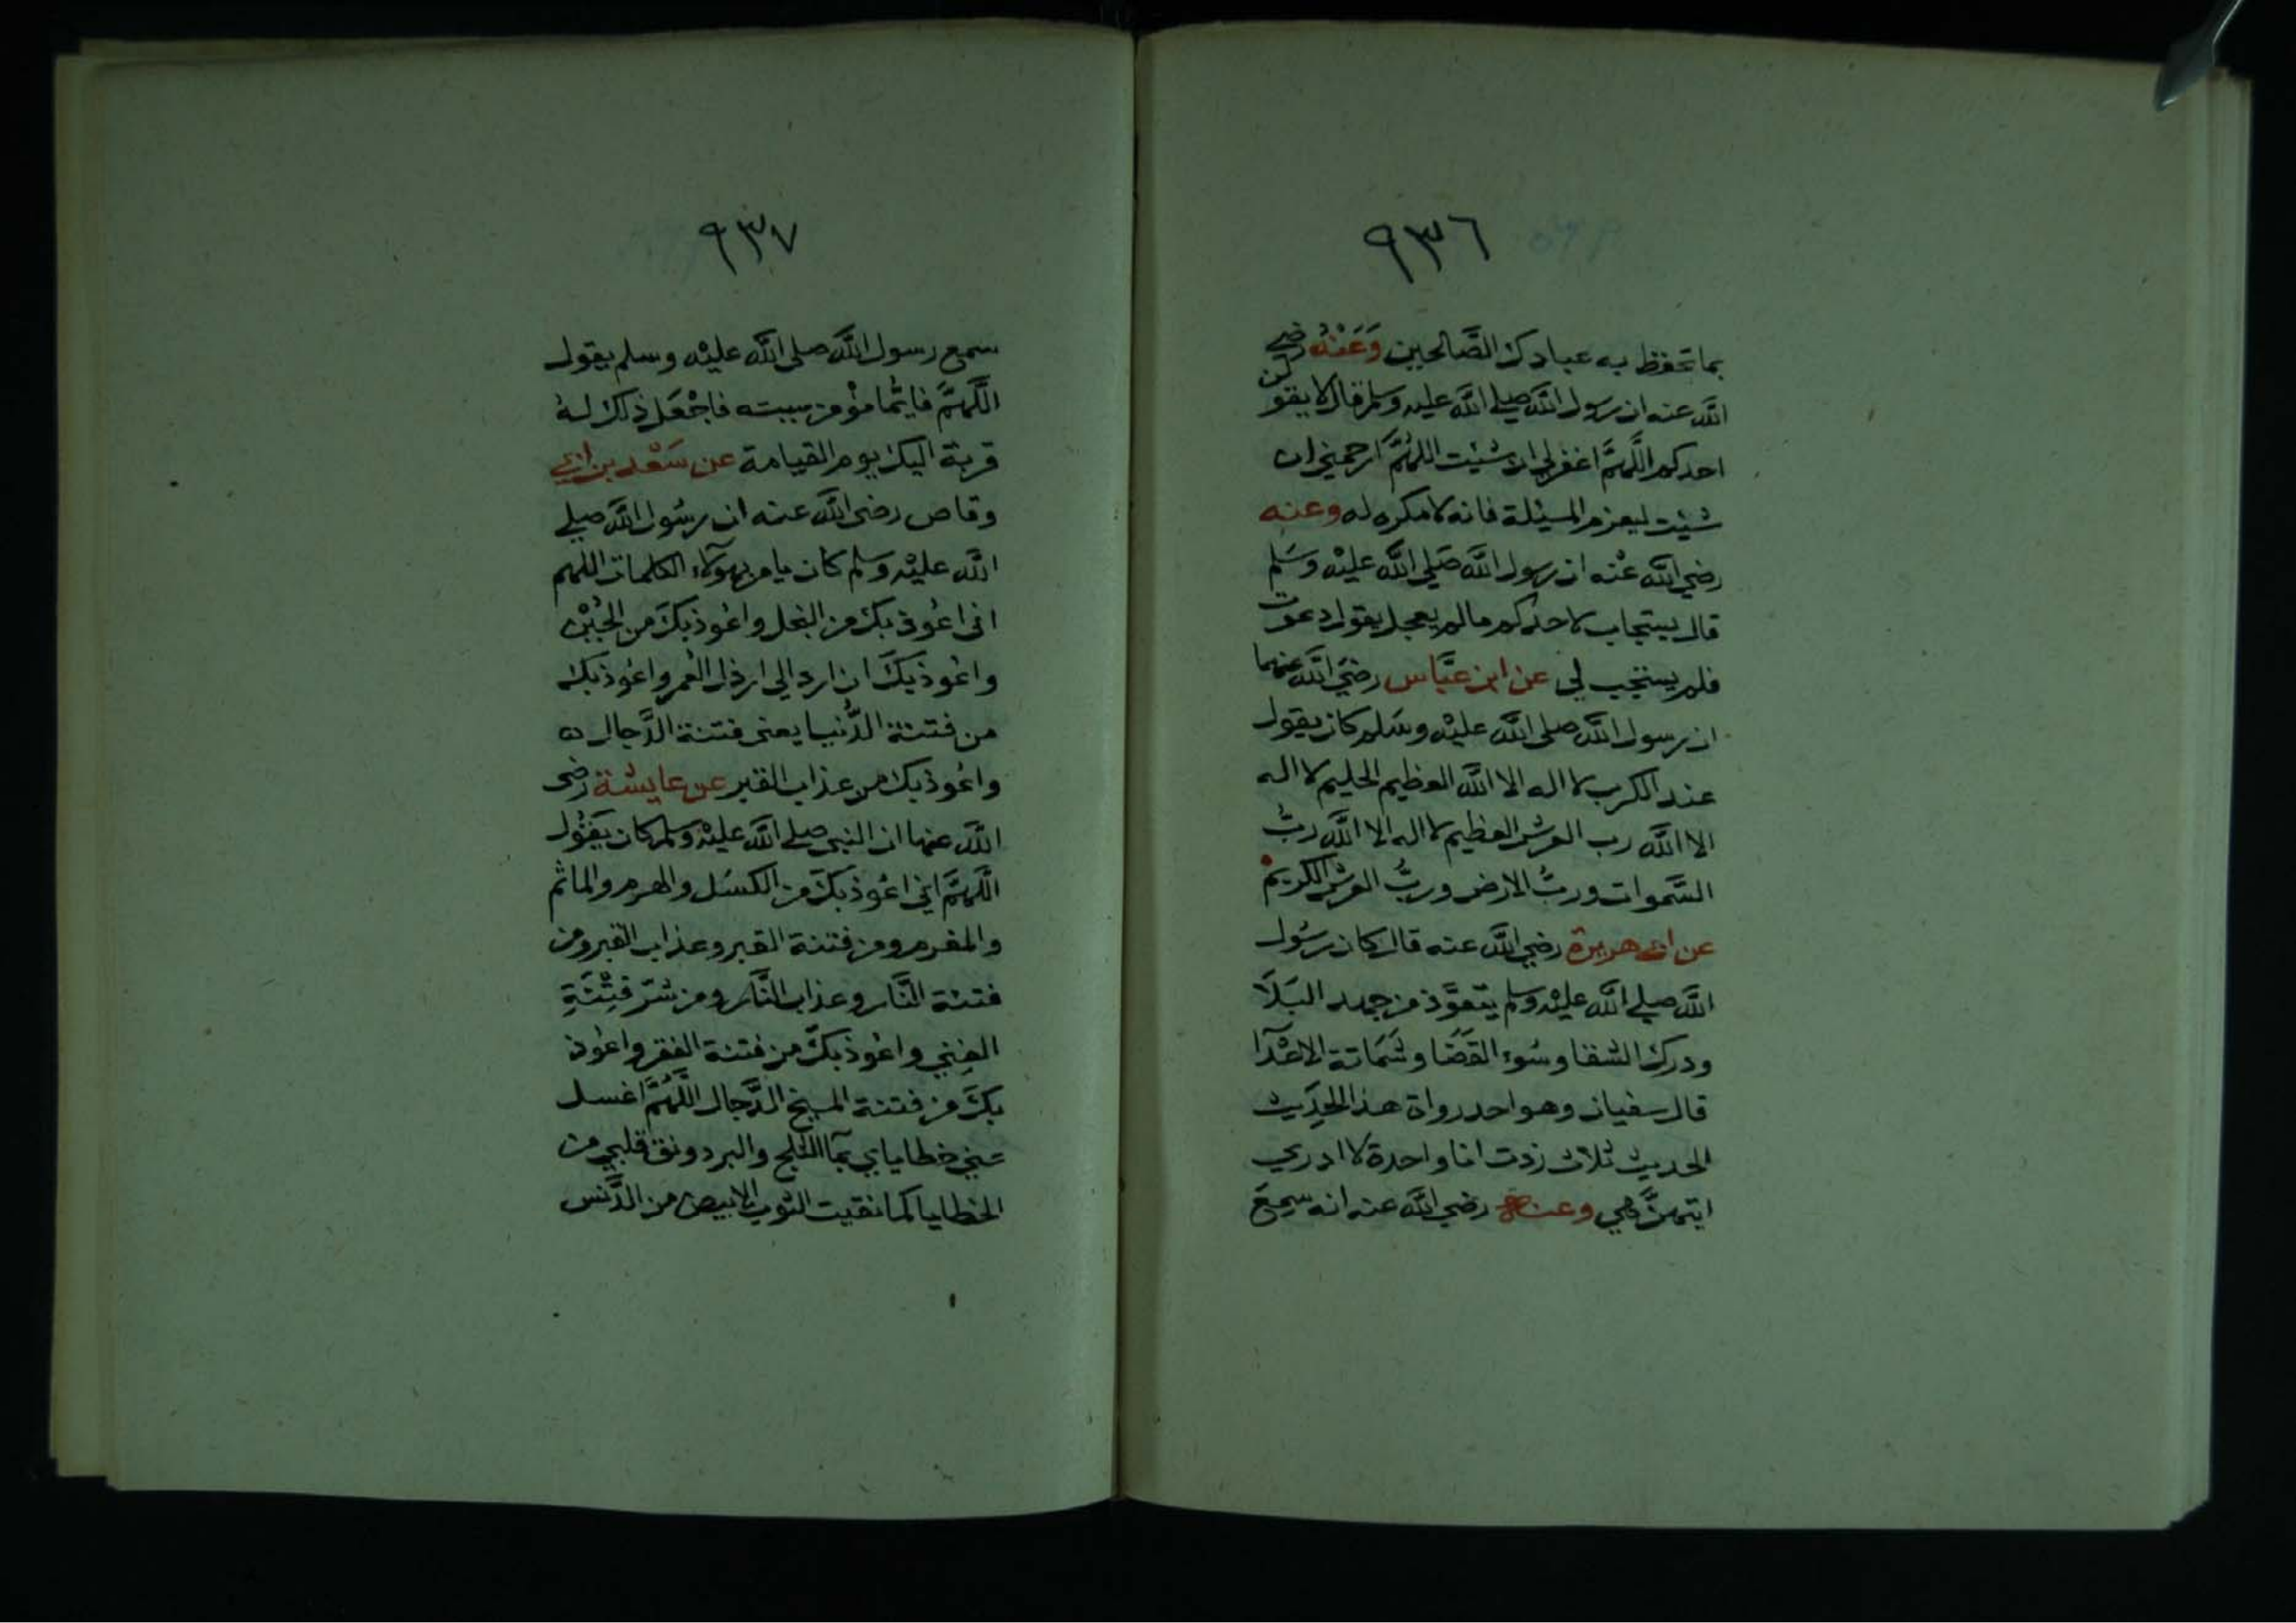 ٩٣٦
بما تحفظ به عبادك الصَّالحين وَعَنْهُ رضي
الله عنه ان رسول الله صلي الله عليه وسلم قال لا يقولن
احدكم اللَّهمَّ اغفر لي ان شئيت اللهُمَّ ارحمني ان
شئيت ليعزم المسئلة فانه لا مكره له وعنه
رضي الله عنْه ان رسول الله صَلي الله عليْه وسَلم
قال يستجاب لاحدكم مالم يعجل يقول دعوت
فلم يستجب لي عن ابن عبَّاس رضيَ الله عنهما
ان رسول الله صلى الله عليْه وسَلم كان يقول
عند الكرب لا اله الا الله العظيم الحليم لا اله
الا الله رب العرش العظيم لا اله الا الله ربُّ
السَّموات وربُّ الارض وربُّ العرش الكريم
عن ابي هريرة رضي الله عنه قال كان رسُول
الله صلي الله عليْه وسلم يتعوَّذ من جهد البَلَا
ودرك الشقا وسُوء القَضَا وشَمَاتة الاعْدَآ
قال سفيان وهو احد رواة هذا الحِدَيث
الحديث ثلاث زدت انا واحدة لا ادري
ايتهنَّ هي وعنه رضي الله عنه انه سِمعَ
٩٣٧
سمع رسول الله صلى الله عليْه وسلم يقول
اللَّهمَّ فايُّما مؤْمن سببته فاجْعَل ذلك لهُ
قربة اليك يوم القيامة عن سَعْد بن ابي
وقاص رضى الله عنه ان رسُول الله صلي
الله عليْه وسلم كان يامر بهولآء الكلمات اللهم
انى اعُوذ بك من البخل واعُوذ بكَ من الجُبْن
واعُوذ بكَ ان ارد الي ارذل العُمر واعُوذ بك
من فتنة الدُّنيا يعنى فتنة الدَّجال ٥
واعُوذ بك من عذاب القبر عن عايشة رضى
الله عنها ان النبي صلي الله عليْه وسلم كان يَقوُل
اللَّهمَّ اني اعُوذ بكَ من الكسَل والهرم والماثم
والمغرم ومن فتنة القبر وعذاب القبر ومن
فتنة النَّار وعذاب النَّار ومن شرّ فِتْنَةِ
الغِني واعُوذ بكَّ من فتنة الفقر واعُوذ
بكَ من فتنة المسيخ الدَّجال اللَّهُمَّ اغسل
عني خطاياي بمآ الثلج والبرد ونق قلبي من
الخطايا كما نقيت الثوب الابيض من الدَّنس